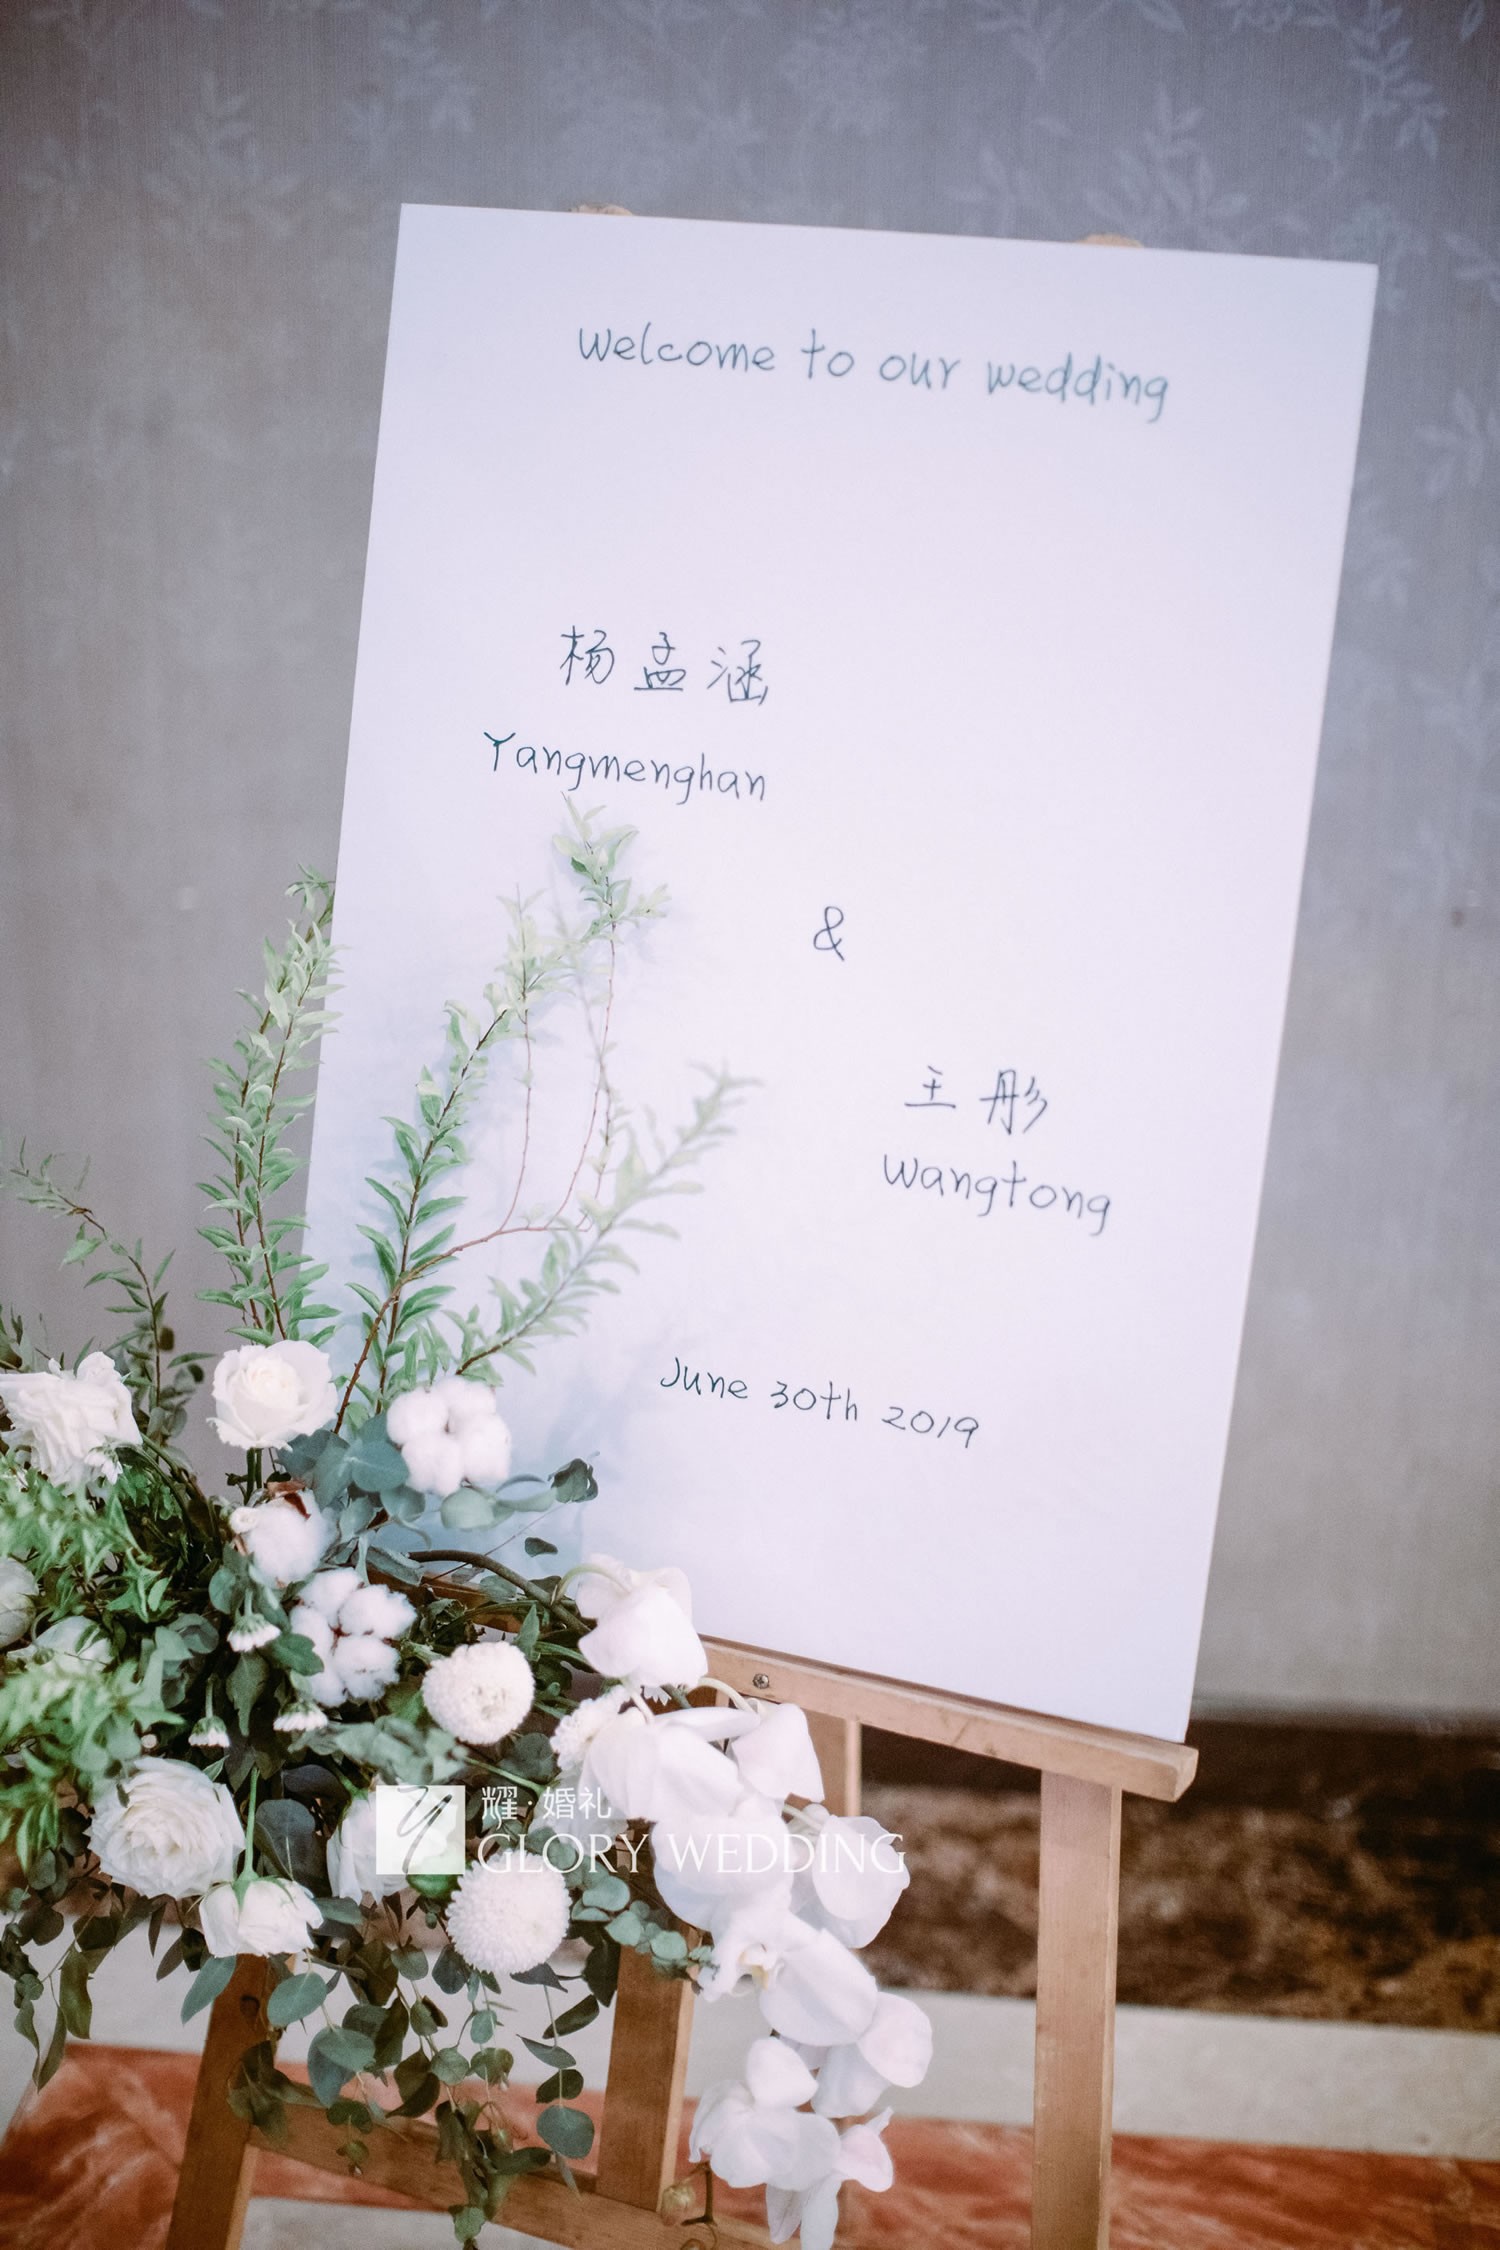 welcome to our wedding
杨孟涵
Yangmenghan
&
王彤
Wangtong
June 30th 2019
耀·婚礼
GLORY WEDDING